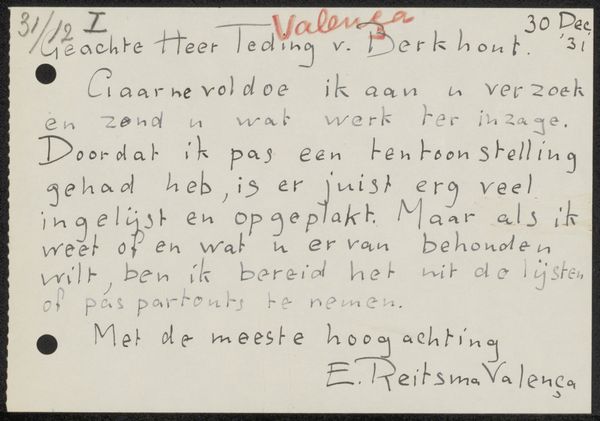 31/12 I Valença 30 Dec '31
Geachte Heer Teding v. Berkhout.
Gaarne voldoe ik aan u verzoek
en zend u wat werk ter inzage.
Doordat ik pas een tentoonstelling
gehad heb, is er juist erg veel
ingelijst en opgeplakt. Maar als ik
weet of en wat u er van behouden
wilt, ben ik bereid het uit de lijsten
of pas partouts te nemen.
Met de meeste hoogachting
E. Reitsma Valença